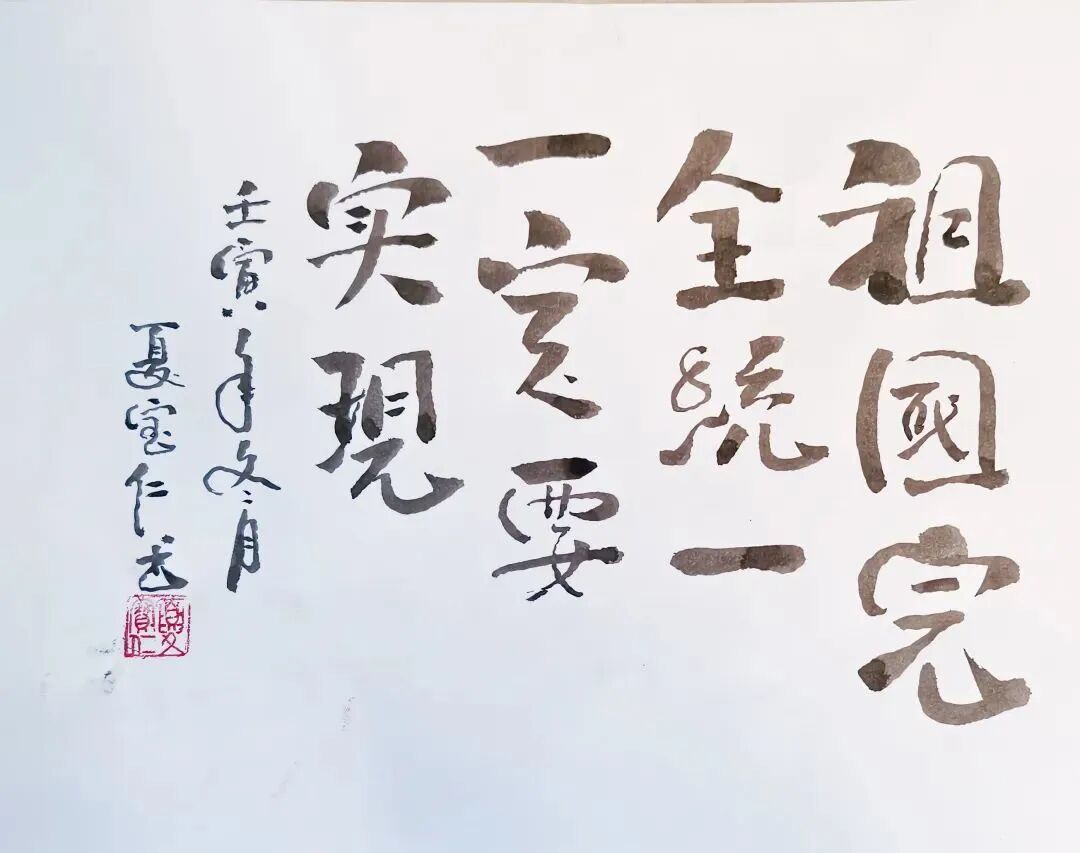 祖國完
全統一
一定要
实現
壬寅年冬月
夏宝仁书
夏寶仁